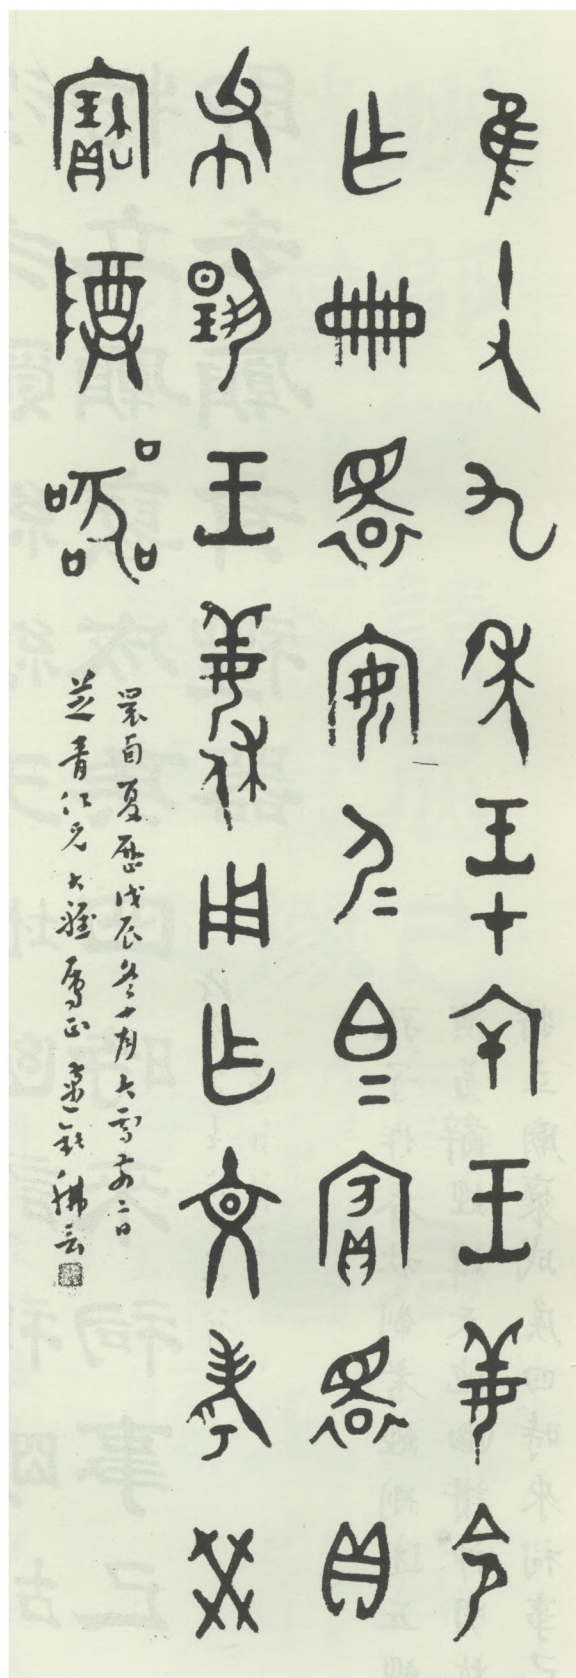 隹十又九年王才厈王姜令
乍册睘安尸=白=賓睘貝
布揚王姜休用乍文考癸
寶尊器
睘卣夏歷戊辰冬十月大雪前二日
芝青仁兄大雅屬正